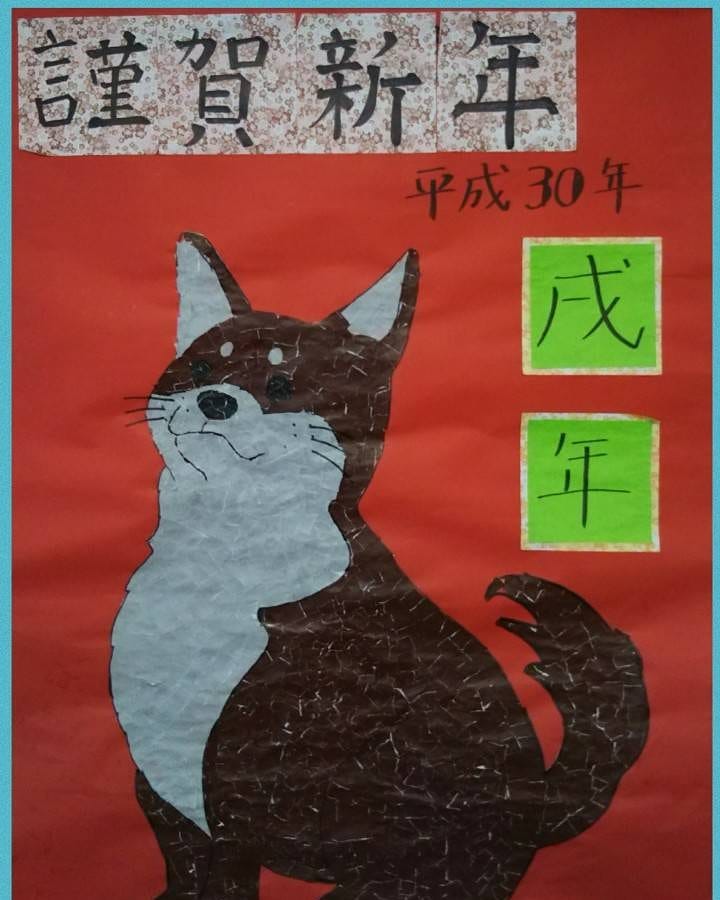 謹賀新年
平成30年
戌
年